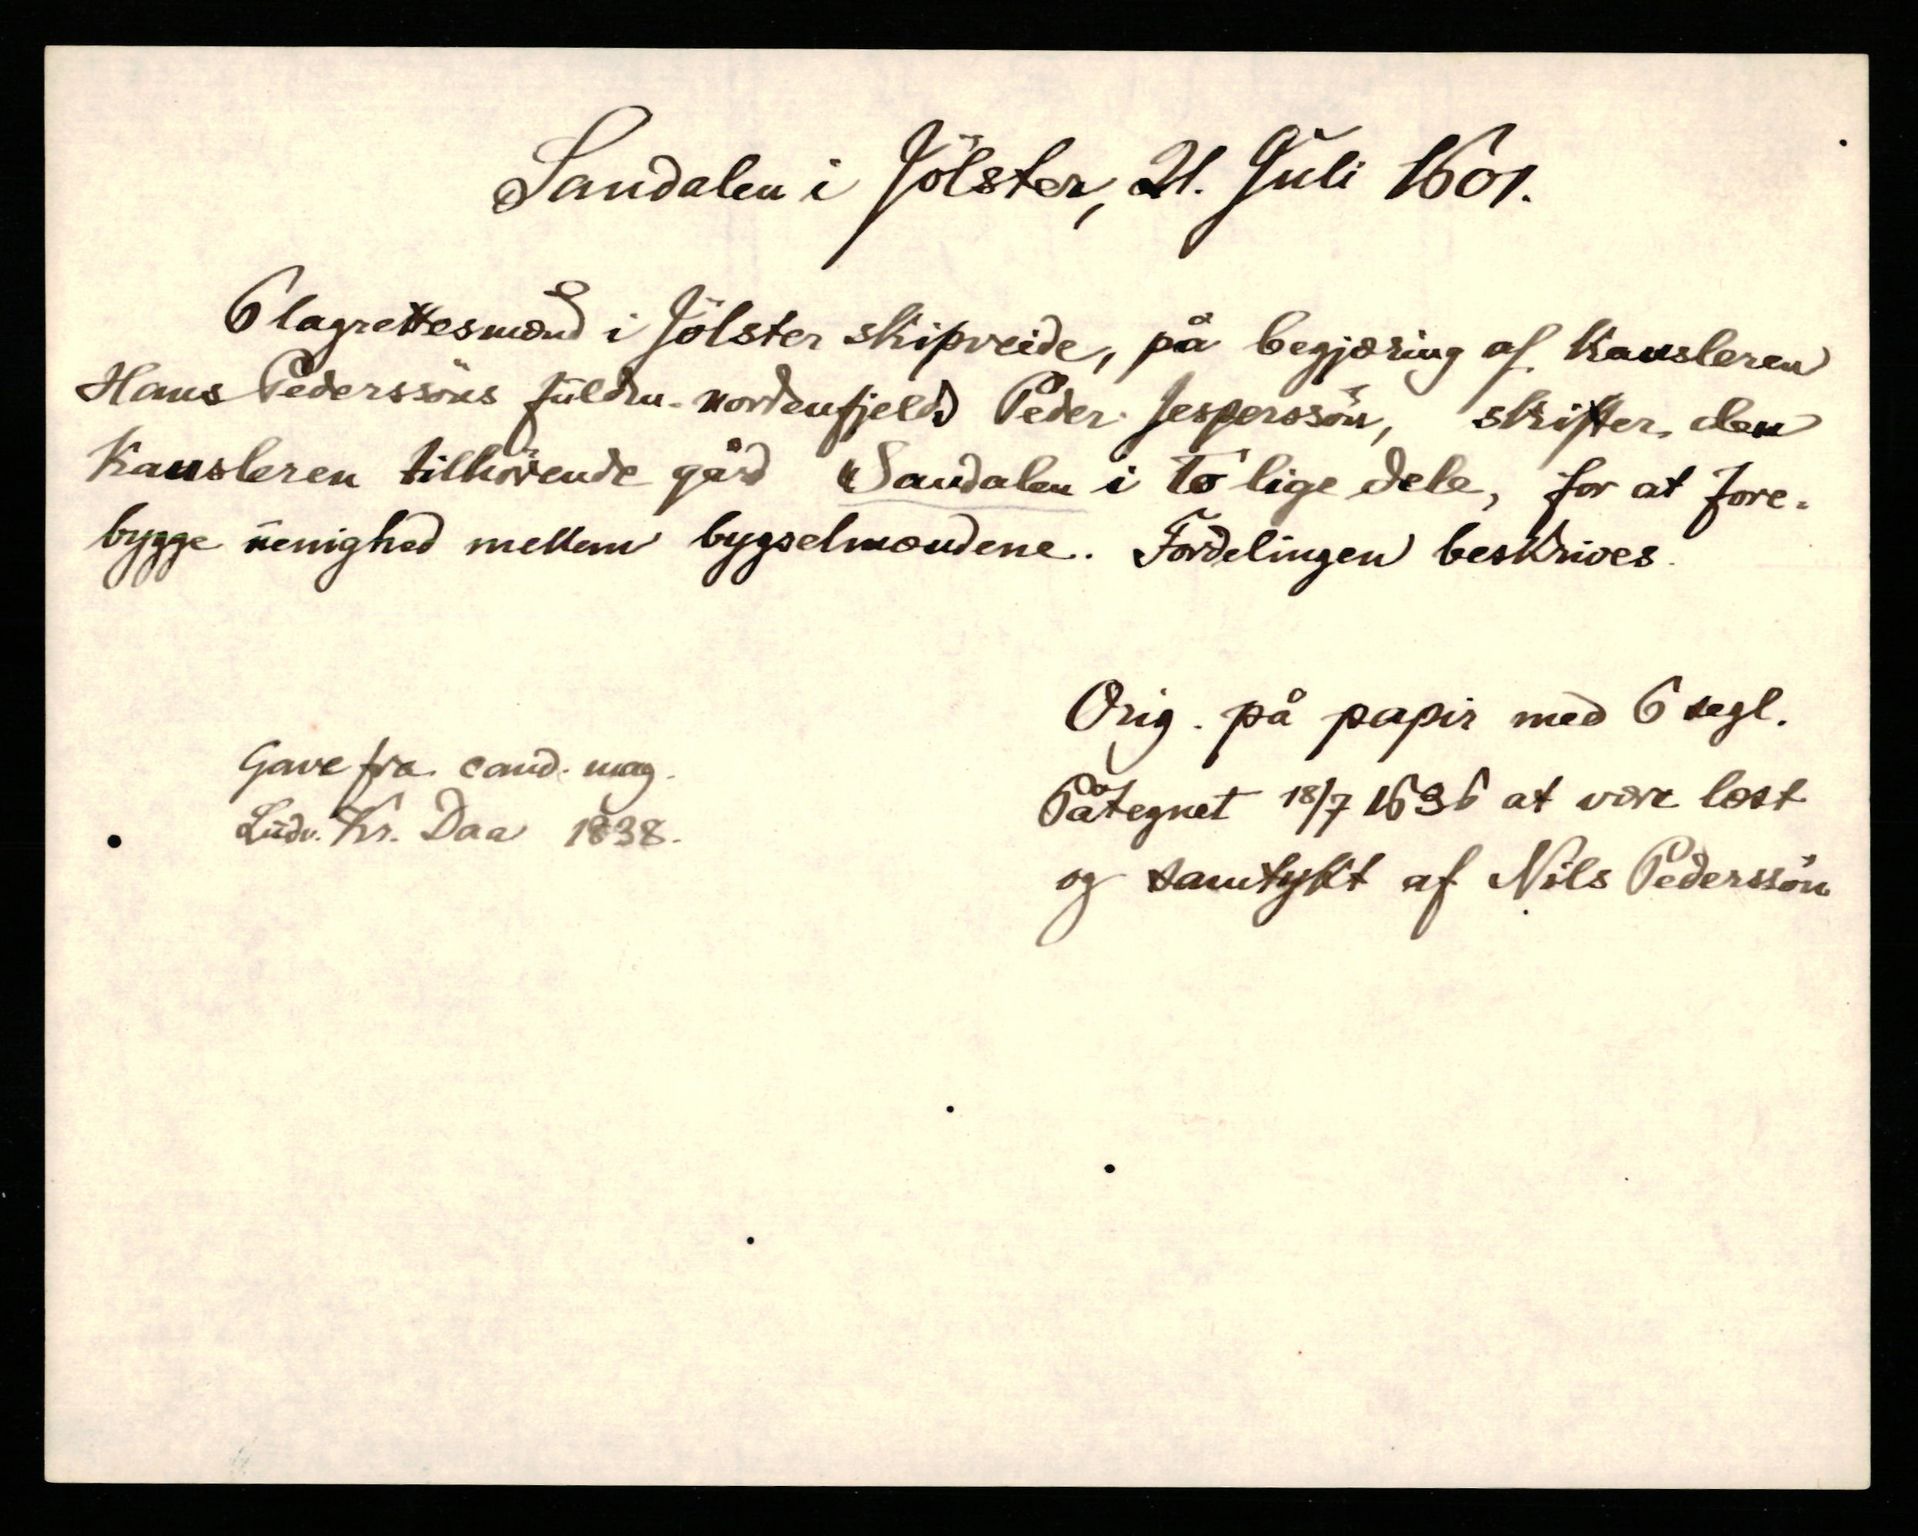 Sandalen i Jölster, 21. Juli 1601.
6 lagrettesmænd i Jölster skipreide, på begjæring af Kansleren
Hans Pederssöns fuldm. nordenfjelds Peder Jesperssön, skifter den
Kansleren tilhörende gård Sandalen i to lige dele, for at fore-
bygge uenighed mellem bygselmændene. Fordelingen beskrives.
Orig. på papir med 6 segl.
Påtegnet 18/7 1636 at være læst
og samtykt af Nils Pederssön
Gave fra cand. mag.
Ludv. Kr. Daa 1838.